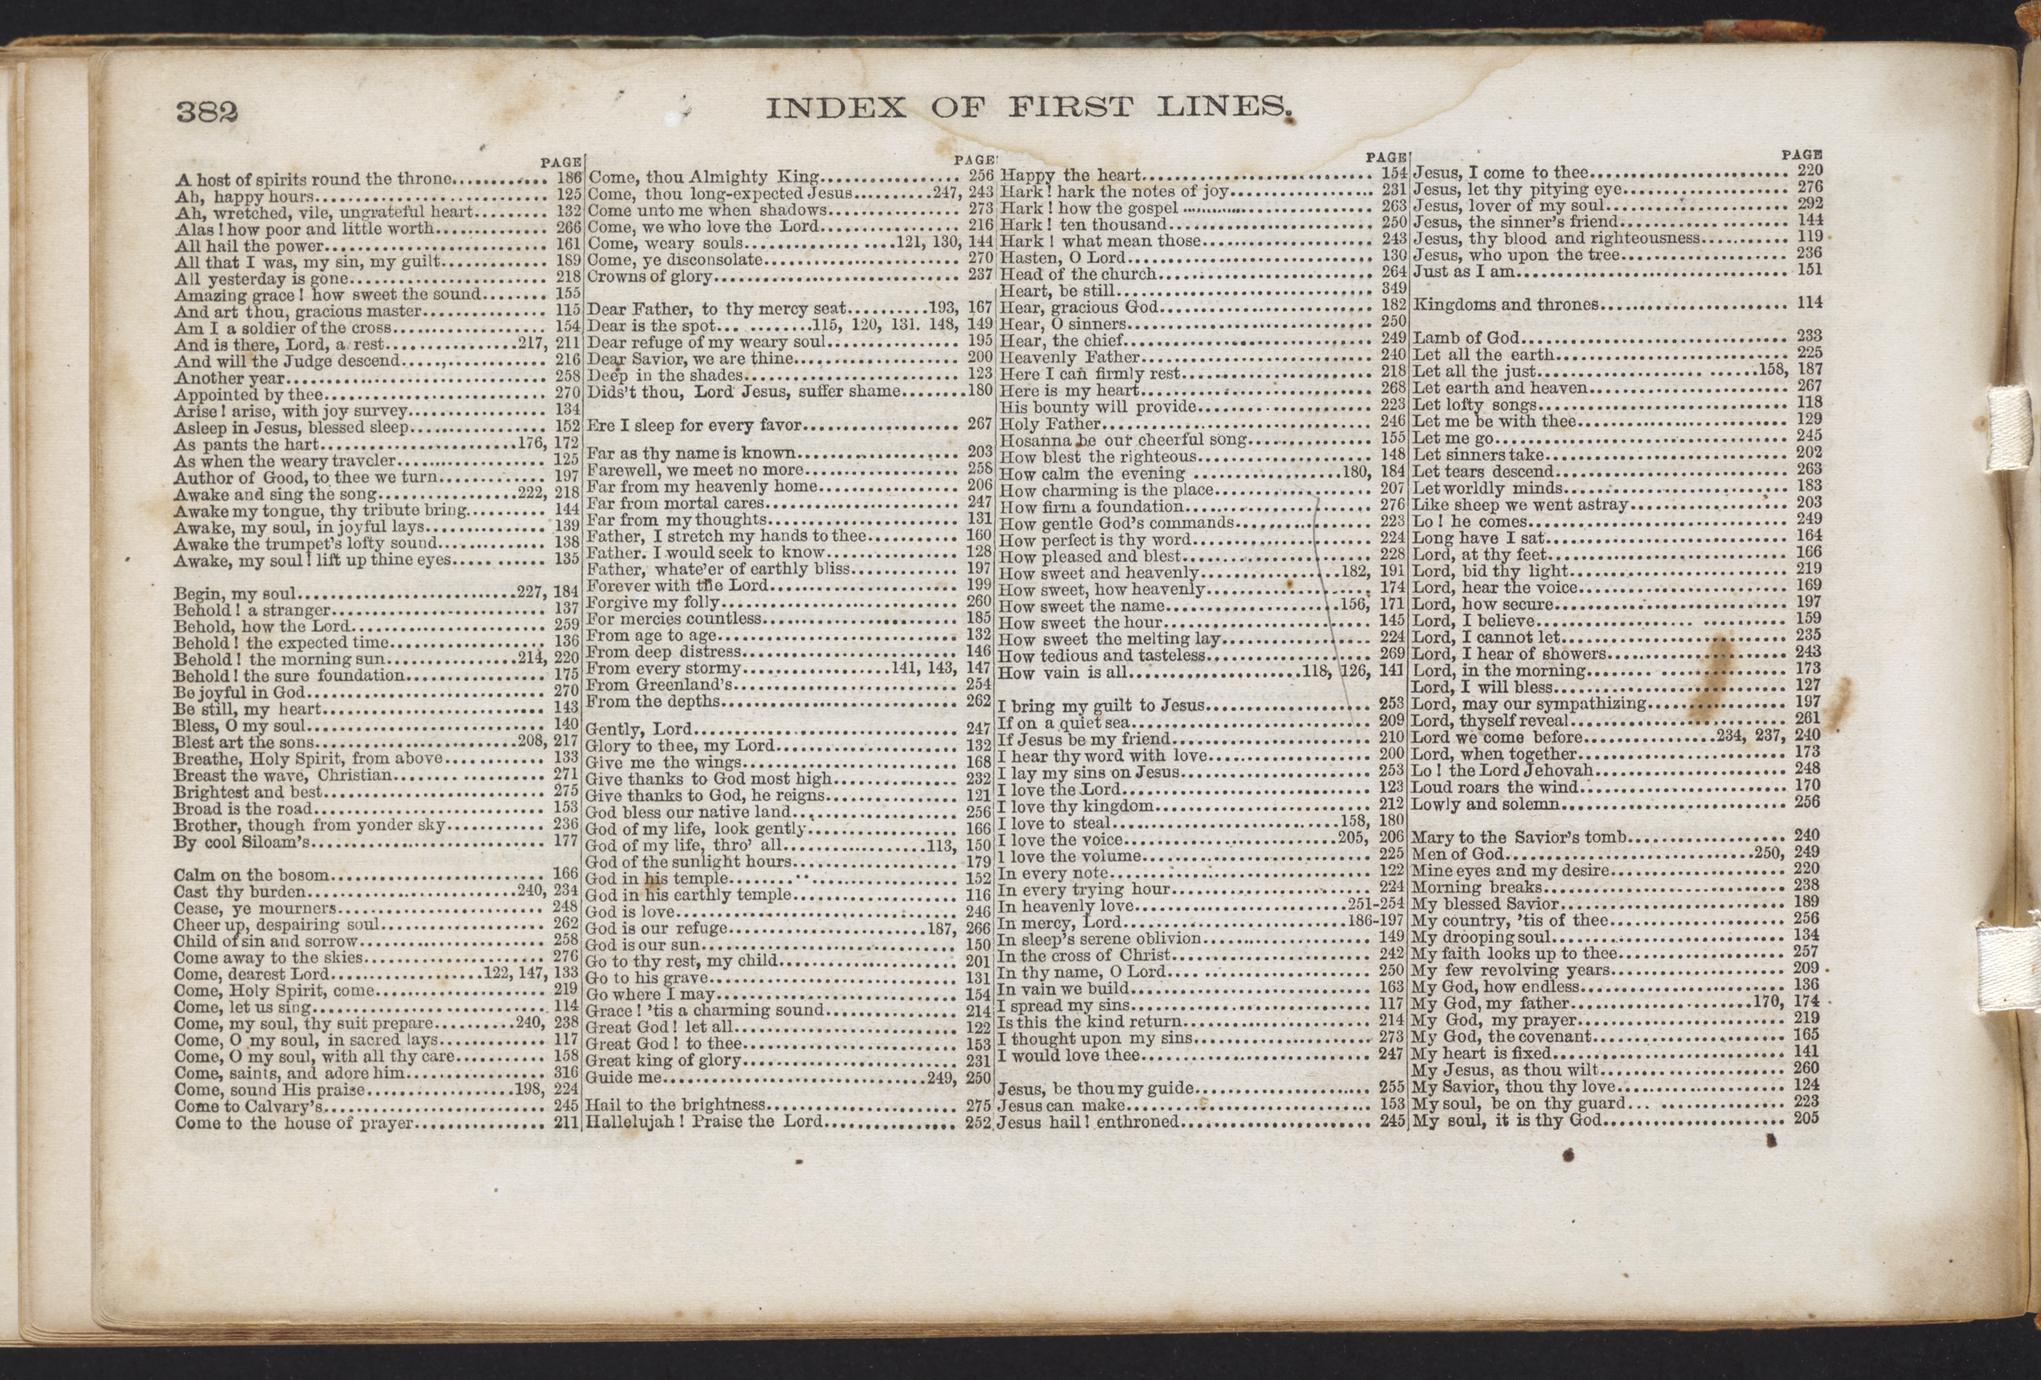 382
INDEX OF FIRST LINES.
PAGE
A host of spirits round the throne............ 186
Ah, happy hours............................ 125
Ah, wretched, vile, ungrateful heart......... 132
Alas! how poor and little worth.............. 266
All hail the power........................... 161
All that I was, my sin, my guilt............. 189
All yesterday is gone........................ 218
Amazing grace! how sweet the sound........ 155
And art thou, gracious master............... 115
Am I a soldier of the cross.................. 154
And is there, Lord, a rest................217, 211
And will the Judge descend.................. 216
Another year................................ 258
Appointed by thee........................... 270
Arise! arise, with joy survey................ 134
Asleep in Jesus, blessed sleep................ 152
As pants the hart........................176, 172
As when the weary traveler.................. 125
Author of Good, to thee we turn............. 197
Awake and sing the song.................222, 218
Awake my tongue, thy tribute bring.......... 144
Awake, my soul, in joyful lays............... 139
Awake the trumpet's lofty sound............. 138
Awake, my soul! lift up thine eyes........... 135
Begin, my soul...........................227, 184
Behold! a stranger.......................... 137
Behold, how the Lord........................ 259
Behold! the expected time................... 136
Behold! the morning sun................214, 220
Behold! the sure foundation................. 175
Be joyful in God............................. 270
Be still, my heart........................... 143
Bless, O my soul............................. 140
Blest art the sons.........................208, 217
Breathe, Holy Spirit, from above............ 133
Breast the wave, Christian................... 271
Brightest and best........................... 275
Broad is the road............................ 153
Brother, though from yonder sky............ 236
By cool Siloam's............................. 177
Calm on the bosom.......................... 166
Cast thy burden..........................240, 234
Cease, ye mourners.......................... 248
Cheer up, despairing soul.................... 262
Child of sin and sorrow...................... 258
Come away to the skies...................... 276
Come, dearest Lord...................122, 147, 133
Come, Holy Spirit, come..................... 219
Come, let us sing............................ 114
Come, my soul, thy suit prepare..........240, 238
Come, O my soul, in sacred lays............. 117
Come, O my soul, with all thy care........... 158
Come, saints, and adore him................. 316
Come, sound His praise..................198, 224
Come to Calvary's........................... 245
Come to the house of prayer................. 211
PAGE
Come, thou Almighty King.................. 256
Come, thou long-expected Jesus..........247, 243
Come unto me when shadows................ 273
Come, we who love the Lord................. 216
Come, weary souls...................121, 130, 144
Come, ye disconsolate....................... 270
Crowns of glory.............................. 237
Dear Father, to thy mercy seat..........193, 167
Dear is the spot... ........115, 120, 131. 148, 149
Dear refuge of my weary soul................ 195
Dear Savior, we are thine.................... 200
Deep in the shades.......................... 123
Dids't thou, Lord Jesus, suffer shame........180
Ere I sleep for every favor................... 267
Far as thy name is known.................... 203
Farewell, we meet no more.................. 258
Far from my heavenly home................. 206
Far from mortal cares....................... 247
Far from my thoughts....................... 131
Father, I stretch my hands to thee........... 160
Father. I would seek to know................ 128
Father, whate'er of earthly bliss.............. 197
Forever with the Lord....................... 199
Forgive my folly............................. 260
For mercies countless........................ 185
From age to age............................. 132
From deep distress.......................... 146
From every stormy..................141, 143, 147
From Greenland's............................ 254
From the depths............................. 262
Gently, Lord................................. 247
Glory to thee, my Lord...................... 132
Give me the wings........................... 168
Give thanks to God most high............... 232
Give thanks to God, he reigns................ 121
God bless our native land.................... 256
God of my life, look gently................... 166
God of my life, thro' all..................113, 150
God of the sunlight hours.................... 179
God in his temple............................ 152
God in his earthly temple.................... 116
God is love.................................. 246
God is our refuge........................187, 266
God is our sun............................... 150
Go to thy rest, my child...................... 201
Go to his grave.............................. 131
Go where I may............................. 154
Grace! 'tis a charming sound................ 214
Great God! let all........................... 122
Great God! to thee.......................... 153
Great king of glory.......................... 231
Guide me................................249, 250
Hail to the brightness........................ 275
Hallelujah! Praise the Lord.................. 252
PAGE
Happy the heart............................. 154
Hark! hark the notes of joy.................. 231
Hark! how the gospel ....................... 263
Hark! ten thousand......................... 250
Hark! what mean those..................... 243
Hasten, O Lord.............................. 130
Head of the church.......................... 264
Heart, be still................................ 349
Hear, gracious God.......................... 182
Hear, O sinners.............................. 250
Hear, the chief............................... 249
Heavenly Father............................ 240
Here I can firmly rest........................ 218
Here is my heart............................. 268
His bounty will provide...................... 223
Holy Father................................. 246
Hosanna be our cheerful song................ 155
How blest the righteous...................... 148
How calm the evening ..................180, 184
How charming is the place................... 207
How firm a foundation....................... 276
How gentle God's commands................ 223
How perfect is thy word..................... 224
How pleased and blest....................... 228
How sweet and heavenly................182, 191
How sweet, how heavenly................... 174
How sweet the name.....................156, 171
How sweet the hour......................... 145
How sweet the melting lay................... 224
How tedious and tasteless.................... 269
How vain is all......................118, 126, 141
I bring my guilt to Jesus..................... 253
If on a quiet sea.............................. 209
If Jesus be my friend........................ 210
I hear thy word with love.................... 200
I lay my sins on Jesus........................ 253
I love the Lord............................... 123
I love thy kingdom.......................... 212
I love to steal............................158, 180
I love the voice...........................205, 206
I love the volume............................ 225
In every note................................ 122
In every trying hour......................... 224
In heavenly love..........................251-254
In mercy, Lord...........................186-197
In sleep's serene oblivion..................... 149
In the cross of Christ......................... 242
In thy name, O Lord......................... 250
In vain we build............................. 163
I spread my sins............................. 117
Is this the kind return........................ 214
I thought upon my sins...................... 273
I would love thee............................ 247
Jesus, be thou my guide...................... 255
Jesus can make.............................. 153
Jesus hail! enthroned........................ 245
PAGE
Jesus, I come to thee......................... 220
Jesus, let thy pitying eye..................... 276
Jesus, lover of my soul....................... 292
Jesus, the sinner's friend..................... 144
Jesus, thy blood and righteousness........... 119
Jesus, who upon the tree..................... 236
Just as I am.................................. 151
Kingdoms and thrones....................... 114
Lamb of God................................ 233
Let all the earth............................. 225
Let all the just...........................158, 187
Let earth and heaven........................ 267
Let lofty songs............................... 118
Let me be with thee.......................... 129
Let me go................................... 245
Let sinners take.............................. 202
Let tears descend............................ 263
Let worldly minds........................... 183
Like sheep we went astray................... 203
Lo! he comes................................ 249
Long have I sat.............................. 164
Lord, at thy feet.............................. 166
Lord, bid thy light........................... 219
Lord, hear the voice.......................... 169
Lord, how secure............................ 197
Lord, I believe............................... 159
Lord, I cannot let............................ 235
Lord, I hear of showers...................... 243
Lord, in the morning........................ 173
Lord, I will bless............................. 127
Lord, may our sympathizing................. 197
Lord, thyself reveal.......................... 261
Lord we come before................234, 237, 240
Lord, when together......................... 173
Lo! the Lord Jehovah....................... 248
Loud roars the wind......................... 170
Lowly and solemn........................... 256
Mary to the Savior's tomb................... 240
Men of God..............................250, 249
Mine eyes and my desire..................... 220
Morning breaks............................. 238
My blessed Savior........................... 189
My country, 'tis of thee...................... 256
My drooping soul............................ 134
My faith looks up to thee.................... 257
My few revolving years...................... 209
My God, how endless........................ 136
My God, my father......................170, 174
My God, my prayer......................... 219
My God, the covenant....................... 165
My heart is fixed............................. 141
My Jesus, as thou wilt....................... 260
My Savior, thou thy love..................... 124
My soul, be on thy guard... ................. 223
My soul, it is thy God........................ 205